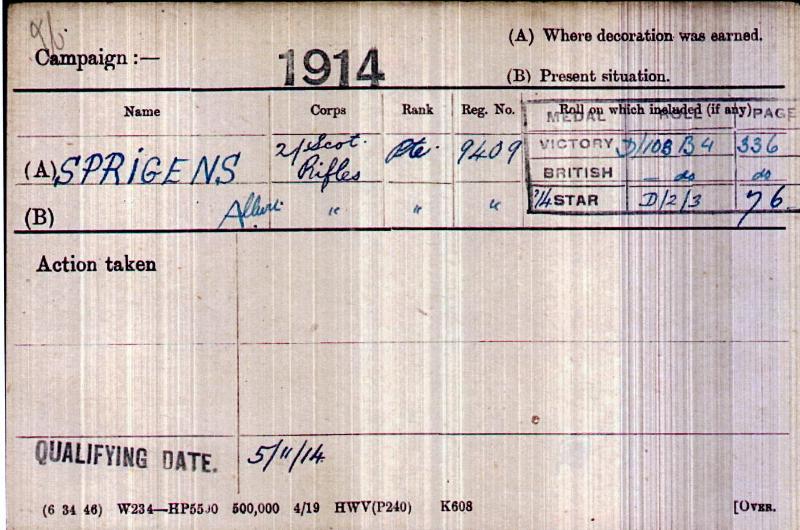 Campaign :—
1914
(A) Where decoration was earned.
(B) Present situation.
Name Corps Rank Reg. No. Roll on which included (if any)
MEDAL ROLL PAGE
(A) SPRIGENS 2/ Scot. Rifles Pte. 9409
VICTORY D/108 B4 336
BRITISH — do do
'14 STAR D/2/3 76
(B) " " "
Action taken
QUALIFYING DATE. 5/11/14
(6 34 46) W234—HP5590 500,000 4/19 HWV(P240) K608 [OVER.